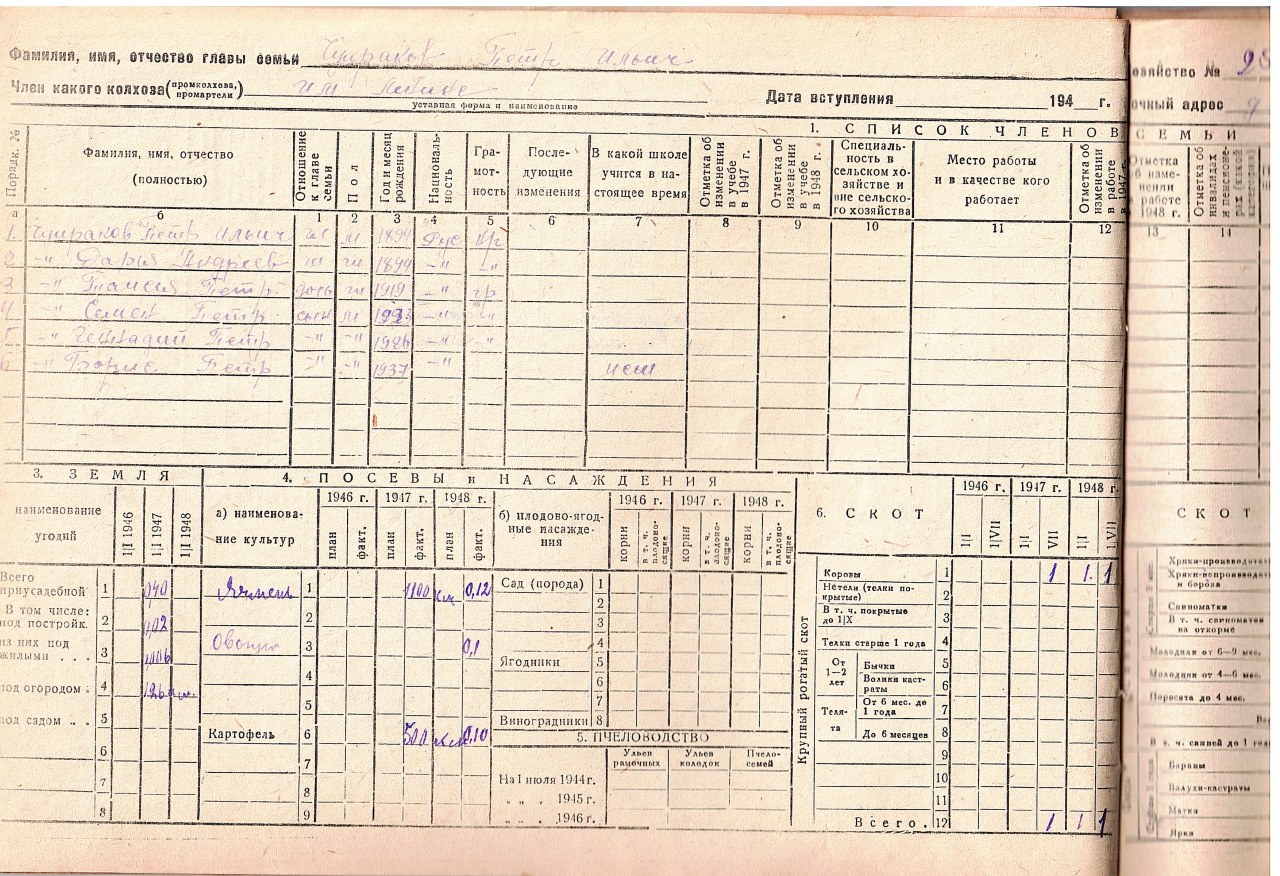 Фамилия, имя, отчество главы семьи Петр Ильич
Член какого колхоза (промколхоза, промартели) им
уставная форма и наименование
Дата вступления 194 г.
озяйство № 98
чный адрес
1. СПИСОК ЧЛЕНОВ СЕМЬИ
Порядк. №
Фамилия, имя, отчество (полностью)
Отношение к главе семьи
Пол
Год и месяц рождения
Националь- ность
Гра- мот- ность
После- дующие изменения
В какой школе учится в на- стоящее время
Отметка об изменении в учебе в 1947 г.
Отметка об изменении в учебе в 1948 г.
Специаль- ность в сельском хо- зяйстве и вне сельско- го хозяйства
Место работы и в качестве кого работает
Отметка об изменении в работе в 1947 г.
Отметка об изме- нении в работе 1948 г.
Отметка об инвалидах и пенсионе- рах
а б 1 2 3 4 5 6 7 8 9 10 11 12 13 14
1. Петр Ильич м 1894 Рус
2 -"- Дарья Андреев 1899 -"- -"-
3 -"- Петр. дочь 1919 -"- гр
4 -"- Семен Петр. сын м 1923 -"- -"-
5 -"- Геннадий Петр -"- -"- 1926 -"-
6 -"- Борис Петр -"- -"- 1937 -"-
3. ЗЕМЛЯ
наименование угодий
1|I 1946 1|I 1947 1|I 1948
Всего приусадебной 1 040
В том числе: под постройк. 2 002
из них под жилыми . . . 3
под огородом . 4
под садом . . 5
6
7
8
4. ПОСЕВЫ и НАСАЖДЕНИЯ
а) наименова- ние культур
1946 г. 1947 г. 1948 г.
план факт. план факт. план факт.
Ячмень 1 1100 0,12
2
Овощи 3 0,1
4
5
Картофель 6 500 0,10
7
8
9
б) плодово-ягод- ные насажде- ния
1946 г. 1947 г. 1948 г.
корни в т. ч. плодоно- сящие корни в т. ч. плодоно- сящие корни в т. ч. плодоно- сящие
Сад (порода) 1
2
3
4
Ягодники 5
6
7
Виноградники 8
5. ПЧЕЛОВОДСТВО
Ульев рамочных Ульев колодок Пчело- семей
На 1 июля 1944 г.
" " . 1945 г.
" " . 1946 г.
6. СКОТ
1946 г. 1947 г. 1948 г.
1|I 1|VII 1|I VII 1|I 1|VII
Крупный рогатый скот
Коровы 1 1 1. 1
Нетели (телки по- крытые) 2
В т. ч. покрытые до 1|X 3
Телки старше 1 года 4
От 1—2 лет
Бычки 5
Волики каст- раты 6
Теля- та
От 6 мес. до 1 года 7
До 6 месяцев 8
9
10
11
Всего. 12 1 1 1
СКОТ
Хряки-производител
Хряки-непроизводит и борова
Свиноматки
В т. ч. свиноматки на откорме
Молодняк от 6—9 мес.
Молодняк от 4—6 мес.
Поросята до 4 мес.
Вс
В т. ч. свиней до 1 год
Бараны
Валухи-кастраты
Матки
Ярки